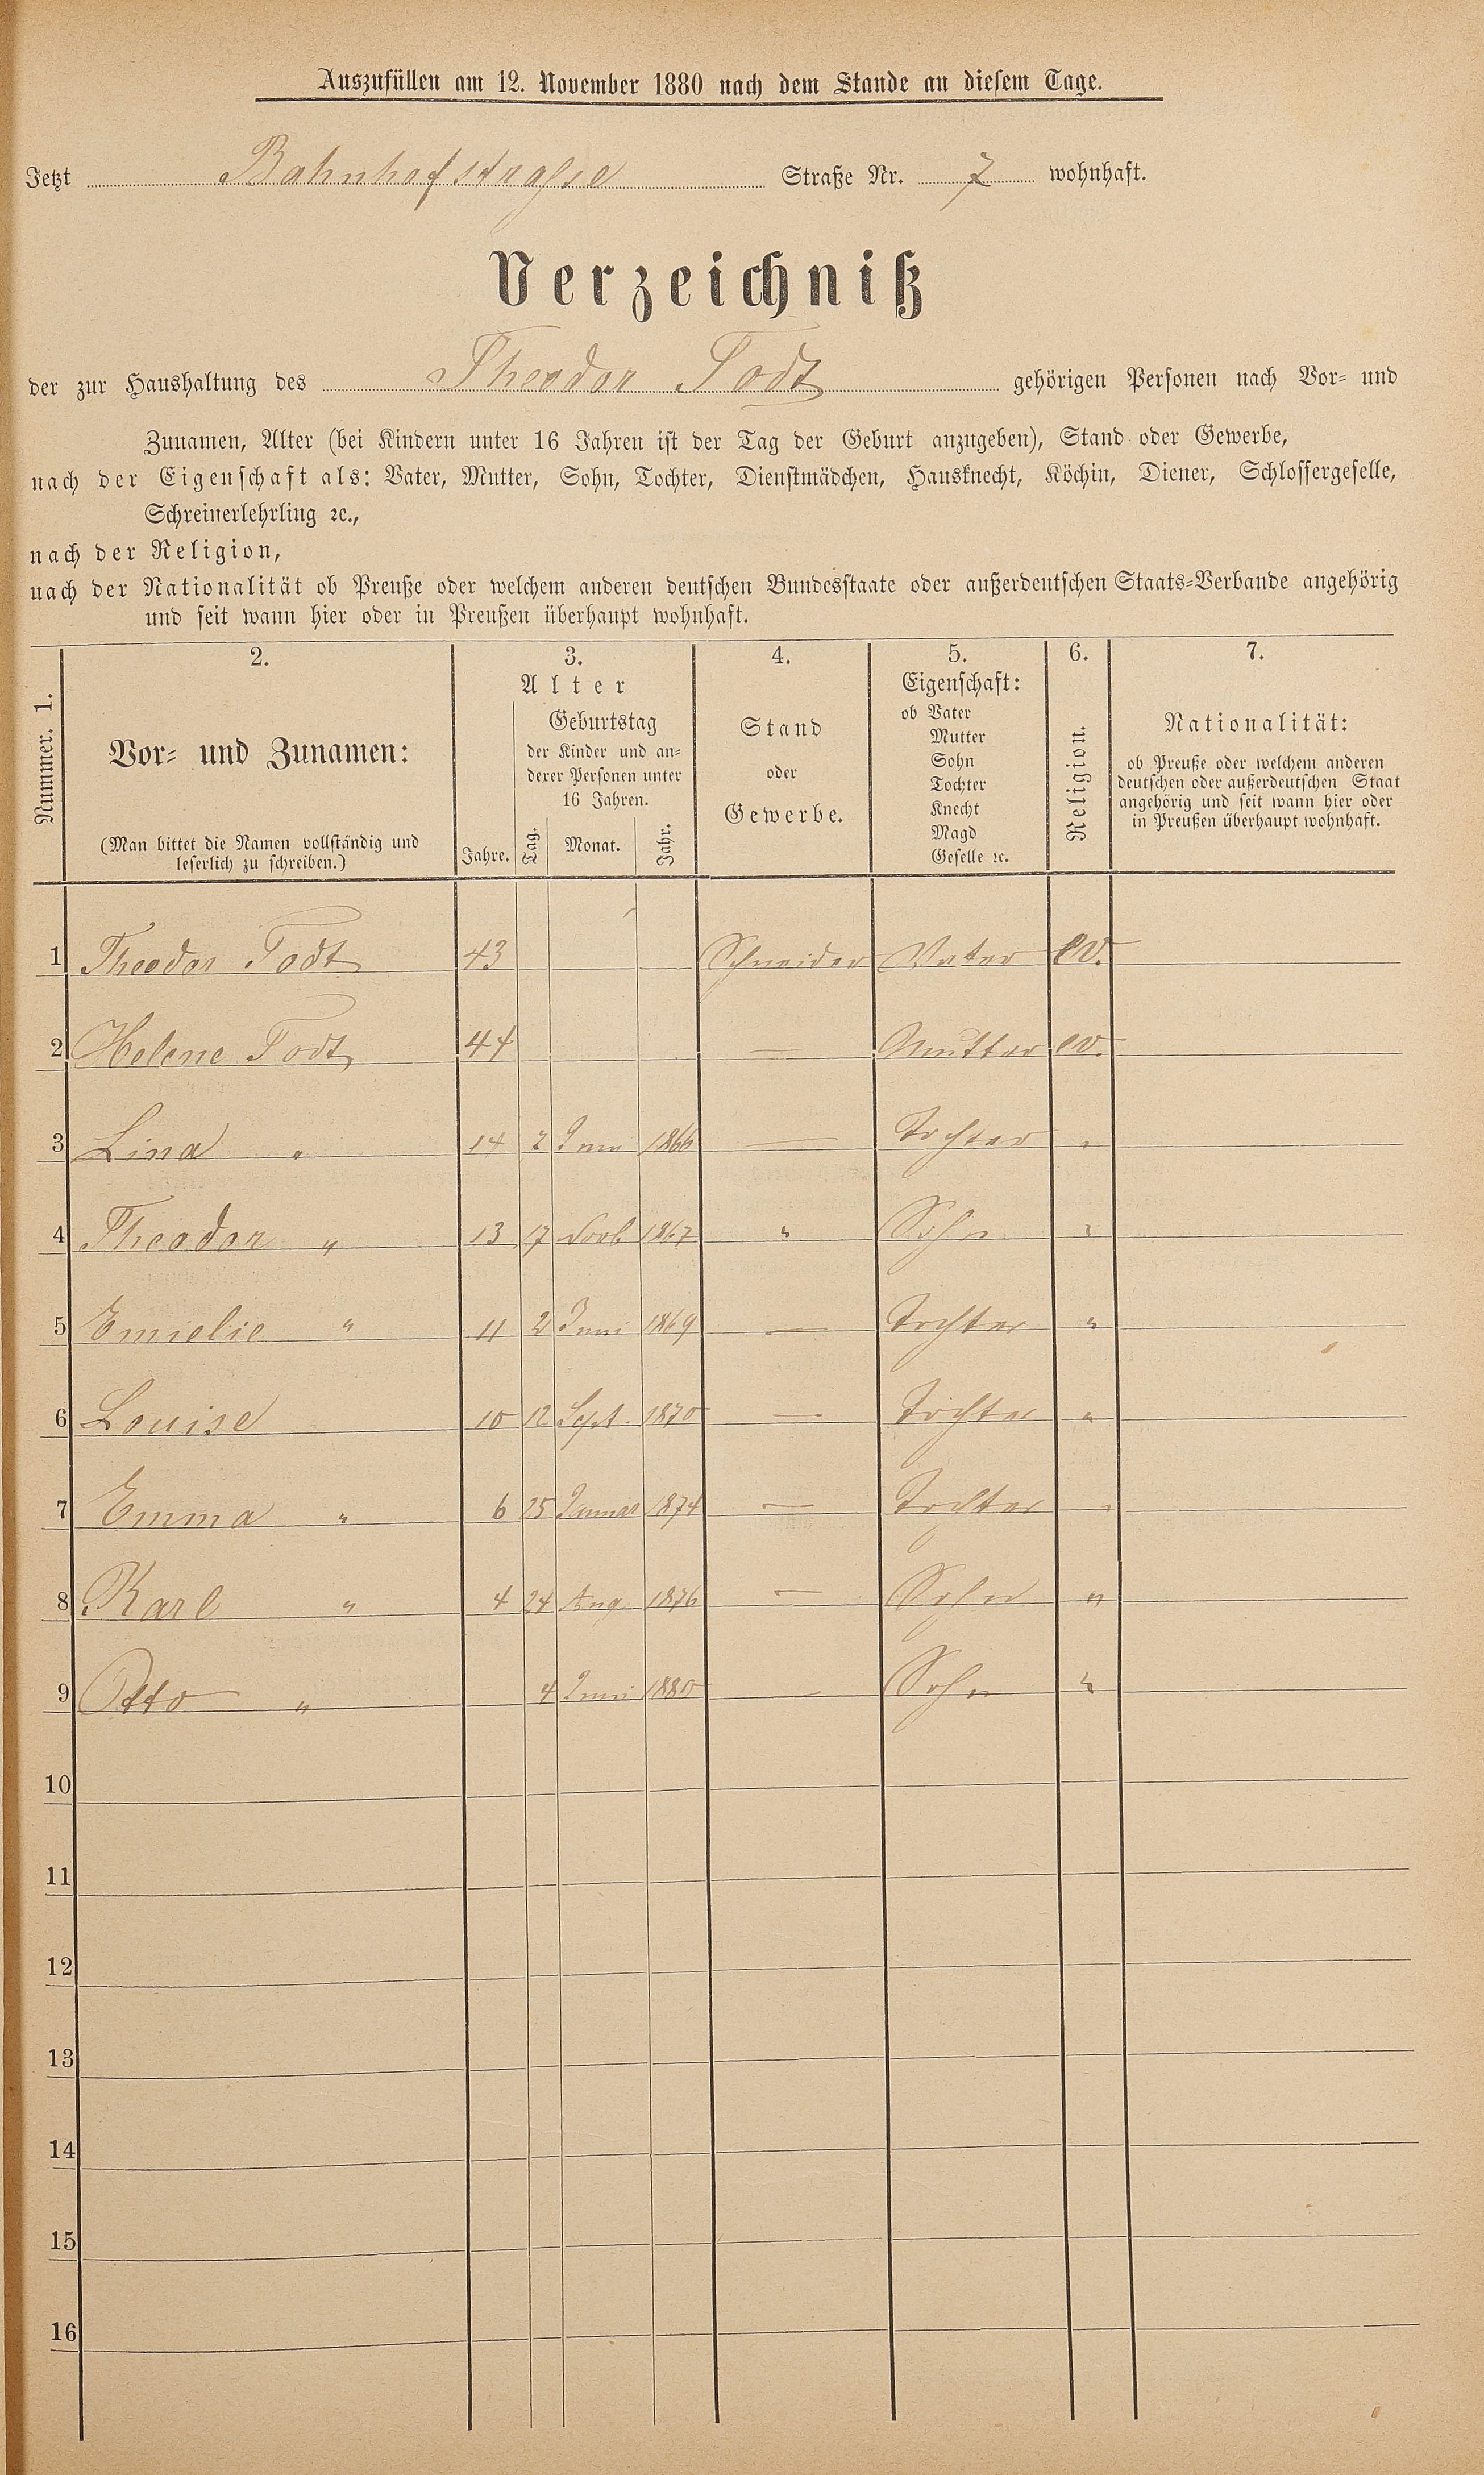 Auszufüllen am 12. November 1880 nach dem Stande an diesem Tage.
Jetzt Bahnhofstraße Straße Nr. 7 wohnhaft.
Verzeichniß
der zur Haushaltung des Theodor Todt gehörigen Personen nach Vor- und
Zunamen, Alter (bei Kindern unter 16 Jahren ist der Tag der Geburt anzugeben), Stand oder Gewerbe,
nach der Eigenschaft als: Vater, Mutter, Sohn, Tochter, Dienstmädchen, Hausknecht, Köchin, Diener, Schlossergeselle,
Schreinerlehrling ꝛc.,
nach der Religion,
nach der Nationalität ob Preuße oder welchem anderen deutschen Bundesstaate oder außerdeutschen Staats-Verbande angehörig
und seit wann hier oder in Preußen überhaupt wohnhaft.
Nummer. 1.
2.
Vor- und Zunamen:
(Man bittet die Namen vollständig und
leserlich zu schreiben.)
3.
Alter
Jahre.
Geburtstag
der Kinder und an-
derer Personen unter
16 Jahren.
Tag. Monat. Jahr.
4.
Stand
oder
Gewerbe.
5.
Eigenschaft:
ob Vater
Mutter
Sohn
Tochter
Knecht
Magd
Geselle ꝛc.
6.
Religion.
7.
Nationalität:
ob Preuße oder welchem anderen
deutschen oder außerdeutschen Staat
angehörig und seit wann hier oder
in Preußen überhaupt wohnhaft.
1 Theodor Todt 43 Schneider Vater ev.
2 Helene Todt 44 — Mutter ev.
3 Lina " 14 Juni 1866 — Tochter "
4 Theodor " 13 17 1867 " Sohn "
5 Emielie " 11 2 Juni 1869 — Tochter "
6 Louise 10 12 Sept. 1870 — Tochter "
7 Emma " 6 25 Januar 1874 — Tochter "
8 Karl " 4 24 Aug. 1876 — Sohn "
9 Otto " 4 Juni 1880 — Sohn "
10
11
12
13
14
15
16